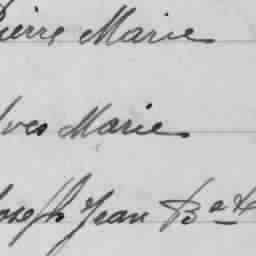 Pierre Marie
Yves Marie
Joseph Jean Bte